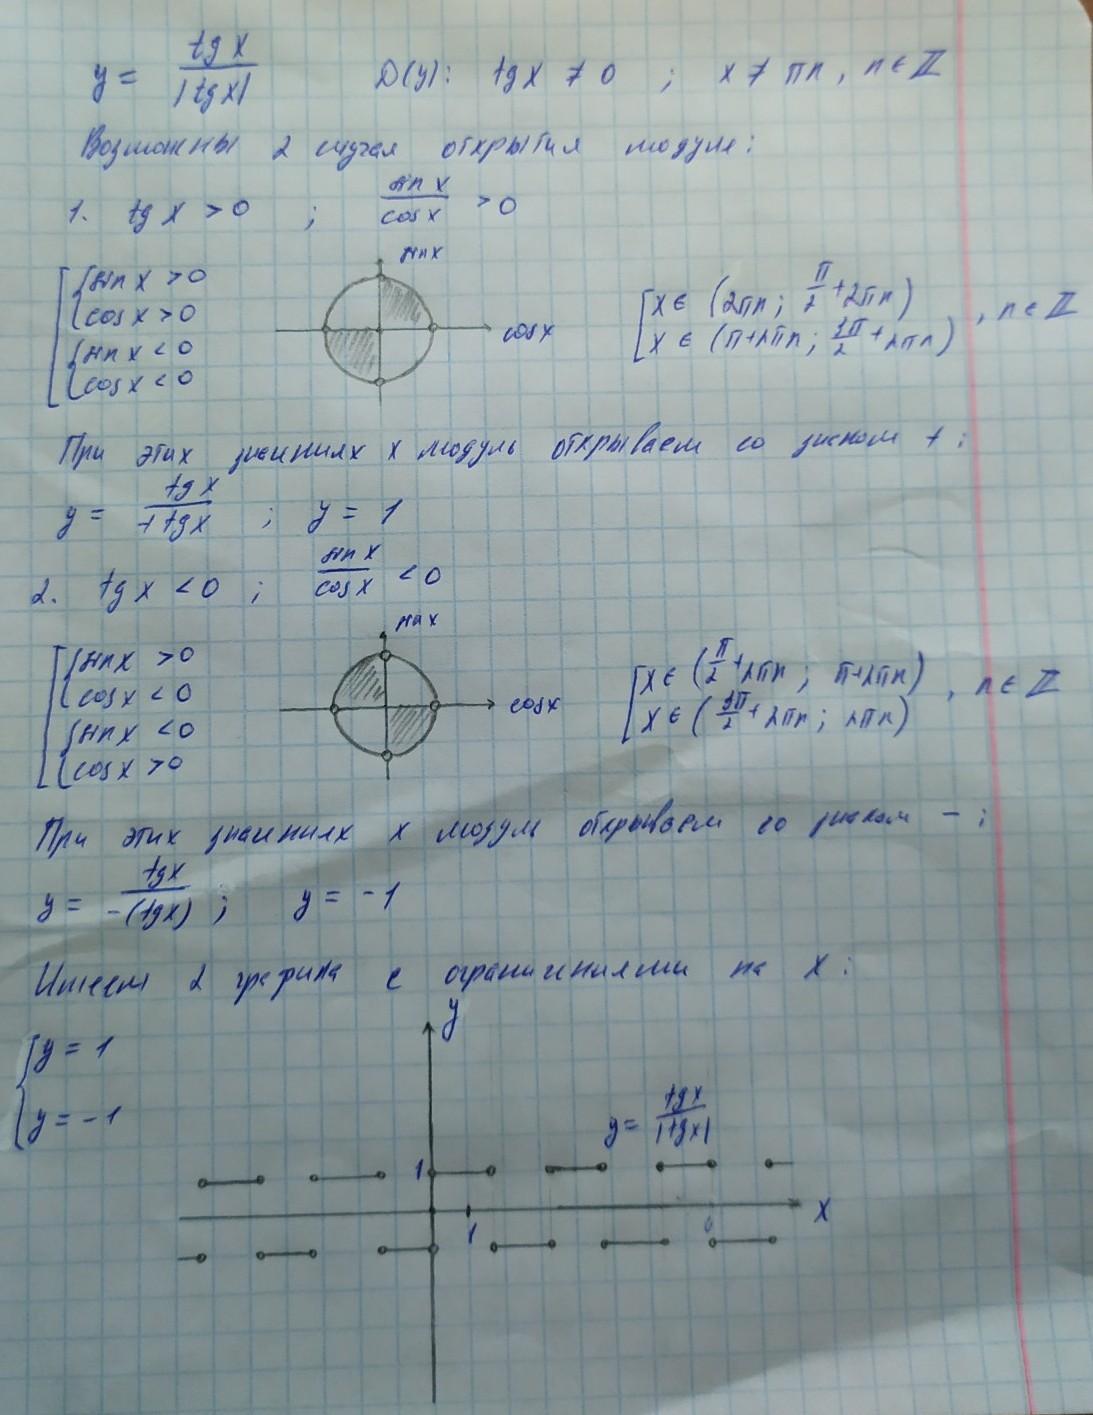 y = tg x / |tg x|   D(y): tg x ≠ 0 ; x ≠ πn, n ∈ ℤ
Возможны 2 случая открытия модуля:
1. tg x > 0 ; sin x / cos x > 0
sin x
[ { sin x > 0
{ cos x > 0
{ sin x < 0
{ cos x < 0
cos x
[ x ∈ (2πn; π/2 + 2πn)
x ∈ (π + 2πn; 3π/2 + 2πn) , n ∈ ℤ
При этих значениях x модуль открываем со знаком + :
y = tg x / + tg x ; y = 1
2. tg x < 0 ; sin x / cos x < 0
sin x
[ { sin x > 0
{ cos x < 0
{ sin x < 0
{ cos x > 0
cos x
[ x ∈ (π/2 + 2πn; π + 2πn)
x ∈ (3π/2 + 2πn; 2πn) , n ∈ ℤ
При этих значениях x модуль открываем со знаком - :
y = tg x / -(tg x) ; y = -1
Имеем 2 графика с ограничениями на x :
{ y = 1
y = -1
y
y = tg x / |tg x|
1
x
1